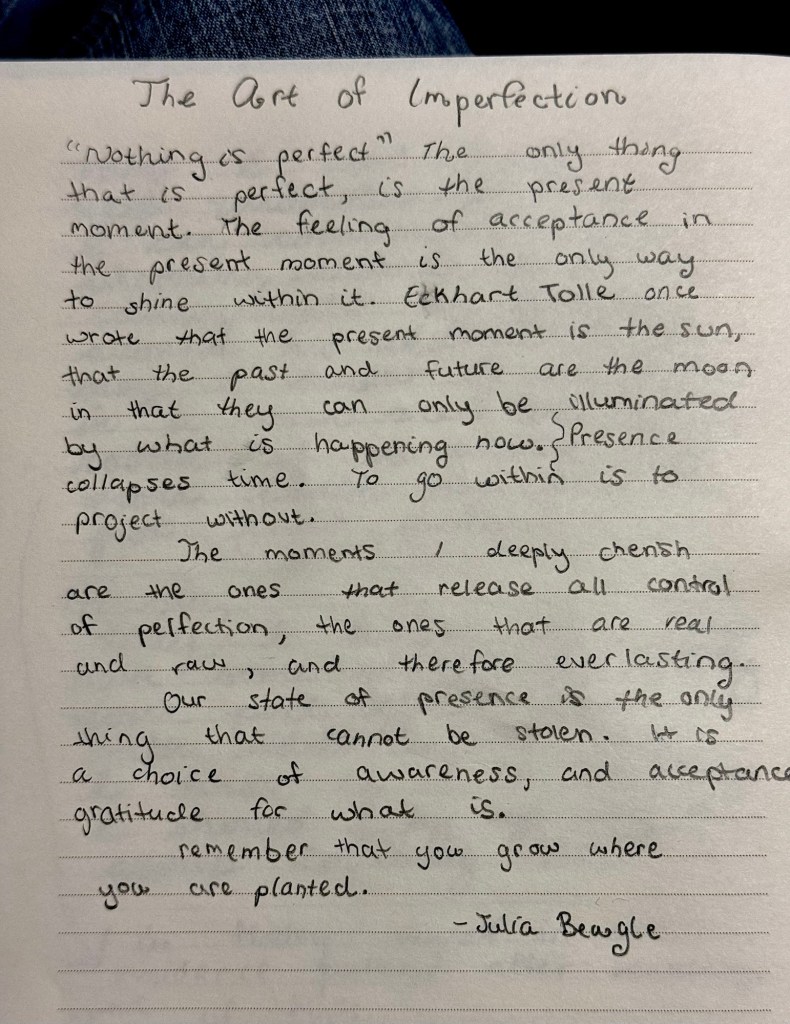 The Art of Imperfection
"Nothing is perfect" The only thing
that is perfect, is the present
moment. The feeling of acceptance in
the present moment is the only way
to shine within it. Eckhart Tolle once
wrote that the present moment is the sun,
that the past and future are the moon
in that they can only be illuminated
by what is happening now. } Presence
collapses time. To go within is to
project without.
The moments I deeply cherish
are the ones that release all control
of perfection, the ones that are real
and raw, and therefore everlasting.
Our state of presence is the only
thing that cannot be stolen. It is
a choice of awareness, and acceptance
gratitude for what is.
remember that you grow where
you are planted.
- Julia Beagle